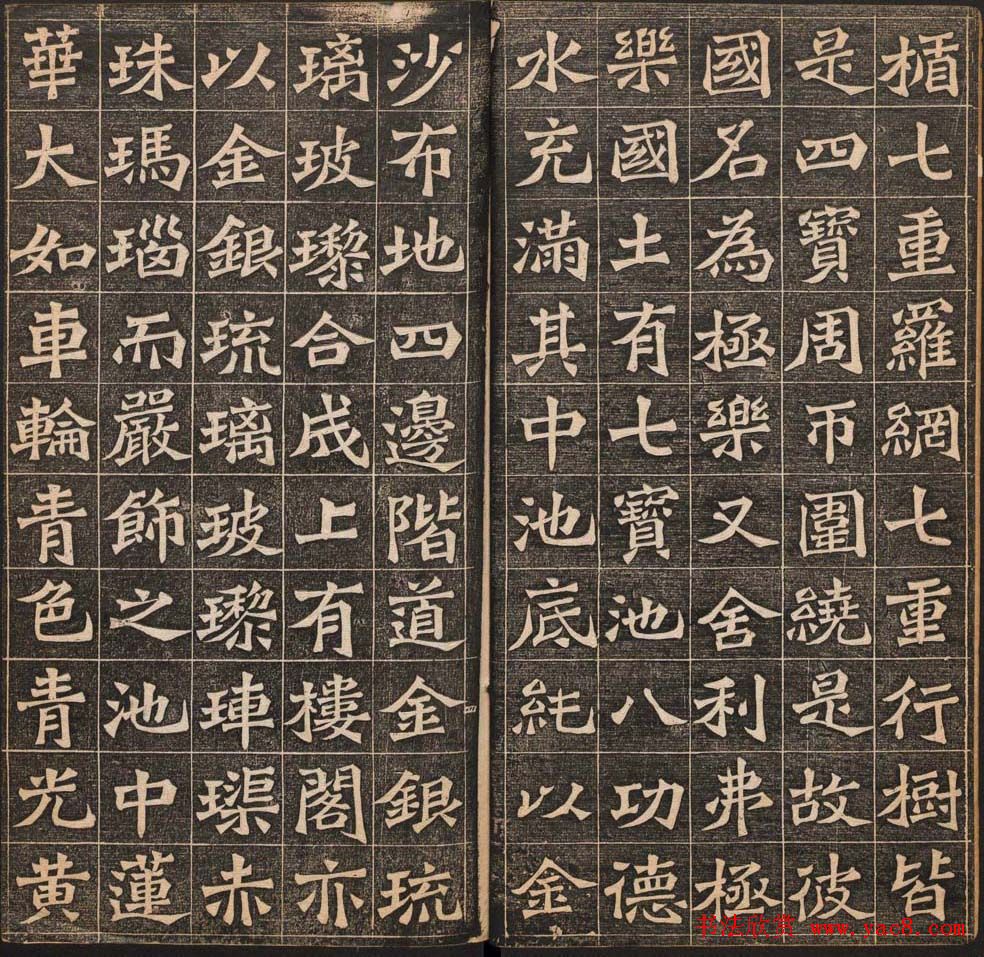 楯七重羅網七重行樹皆
是四寶周帀圍繞是故彼
國名為極樂又舍利弗極
樂國土有七寶池八功德
水充滿其中池底純以金
沙布地四邊階道金銀琉
璃玻瓈合成上有樓閣亦
以金銀琉璃玻瓈硨璖赤
珠瑪瑙而嚴飾之池中蓮
華大如車輪青色青光黄
书法欣赏 www.yac8.com